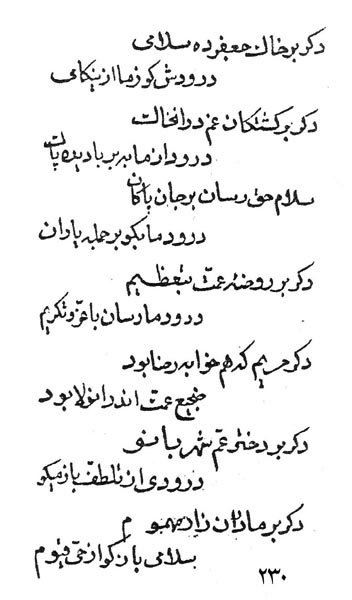 دکر بر خاك جعفر ده سلامی
درودش کو زما از نیکنامی
دکر بر کشتکان عم در ان خاك
درود از ما ببر با دیده پاك
سلام حق رسان بر جان پاکان
درود ما بکو بر جمله یاران
دکر بر روضه عمت بتعظیم
درود ما رسان با عز و تکریم
دکر حریم که هم خوابه رضا بود
ضجیع عمت اندر انولا بود
دکر بر دختر عم شهر بانو
درودی از تلطف باز میکو
دکر بر ماذران زاد
سلامی باز کو از حی قیوم
۲۳۰